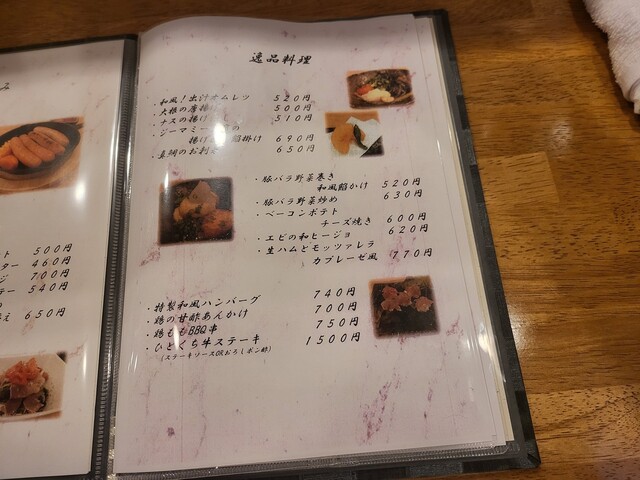 逸品料理
・和風！出汁オムレツ 520円
・大根の唐揚げ 500円
・ナスの揚げ 510円
・ジーマミー の
揚げ 餡掛け 690円
・真鯛のお刺 650円
・豚バラ野菜巻き
和風餡かけ 520円
・豚バラ野菜炒め 630円
・ベーコンポテト
チーズ焼き 600円
・エビの和ヒージョ 620円
・生ハムとモッツァレラ
カプレーゼ風 770円
・特製和風ハンバーグ 740円
・鶏の甘酢あんかけ 700円
・鶏ももBBQ串 750円
・ひとくち牛ステーキ 1500円
(ステーキソースORおろしポン酢)
み
ト 500円
ター 460円
ジ 700円
テー 540円
え 650円